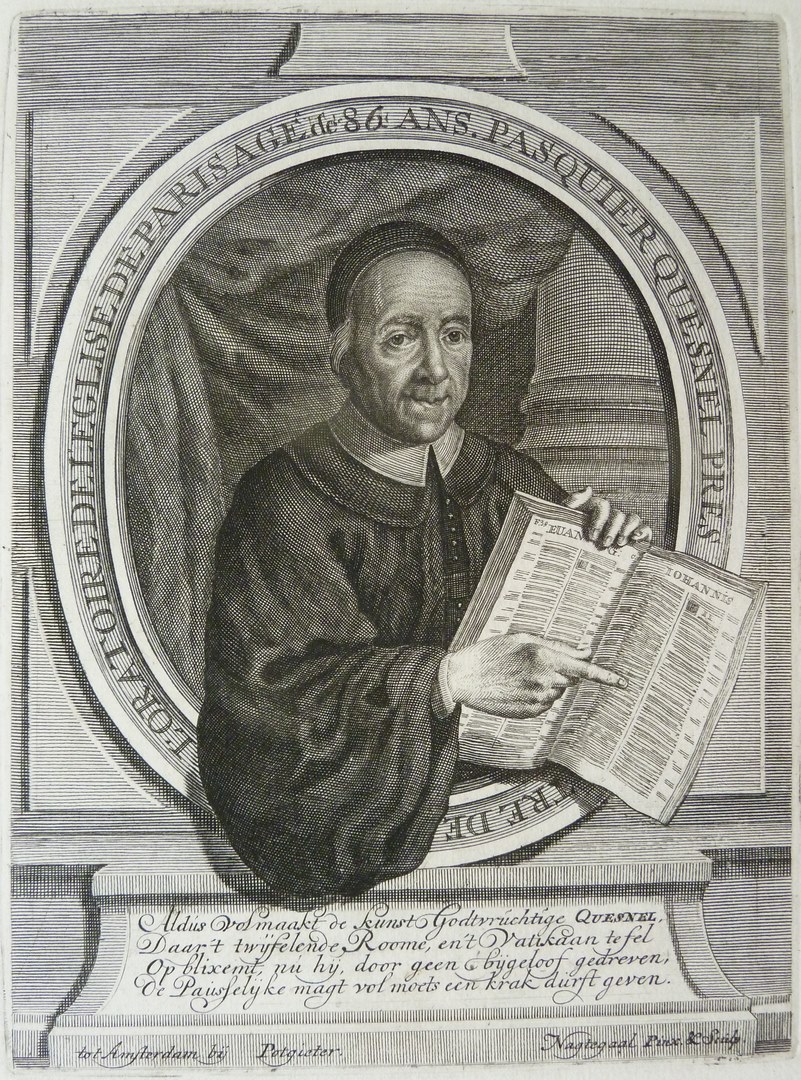 PASQUIER QUESNEL PRES TRE DE L'ORATOIRE DE L'EGLISE DE PARIS AGÉ de 86 ANS.
EUAN G.
IOHANNIS
Aldús volmaakt de kunst Godtvrúchtige QUESNEL,
Daar't twyfelende Roome, en't Vatikaan te fel
Op blixemt, nú hij, door geen bijgeloof gedreven,
De Paùsselÿke magt vol moets een krak dùrft geven.
tot Amsterdam bij Potgieter.
Nagtegaal Pinx. & Sculp.